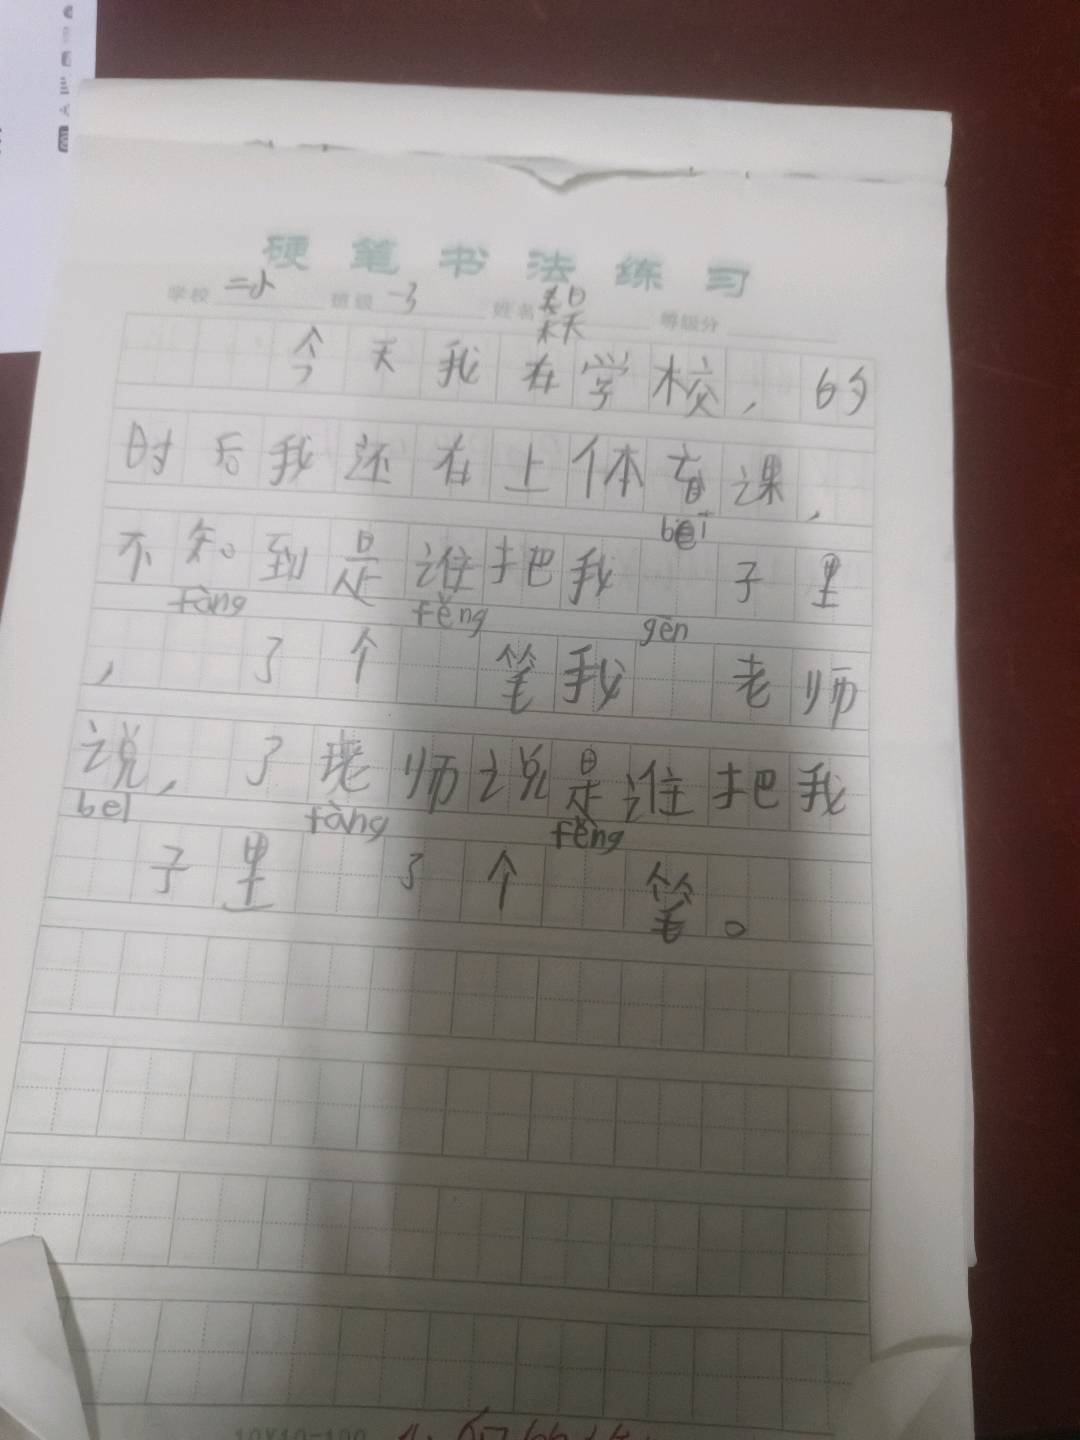 硬笔书法练习
学校 二小 班级 一3 姓名 等级分
今天我在学校，的
时后我还在上体育课，
bēi
不知到是谁把我 子里
fàng fěng gēn
， 了个 笔我 老师
说，了老师说是谁把我
bēi fàng fěng
子里 了个 笔。
10X10=100